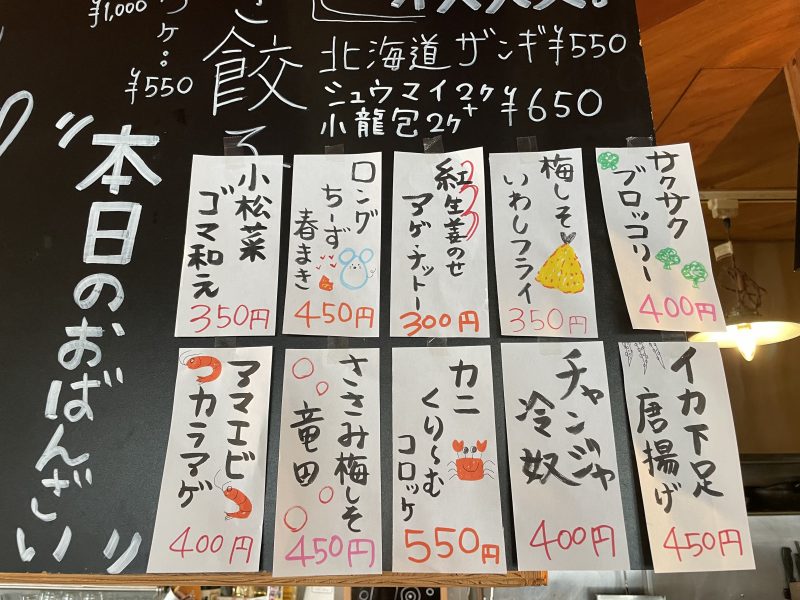 ¥1,000
ケ..
¥550
餃
北海道ザンギ¥550
シュウマイ2ケ+
小龍包2ケ
¥650
"本日のおばんざい"
サクサク
ブロッコリー
400円
梅しそ
いわしフライ
350円
紅生姜のせ
アゲナットー
300円
ロング
ちーず
春まき
450円
小松菜
ゴマ和え
350円
イカ下足
唐揚げ
450円
チャンジャ
冷奴
400円
カニ
くり〜む
コロッケ
550円
ささみ梅しそ
竜田
450円
アマエビ
カラアゲ
400円